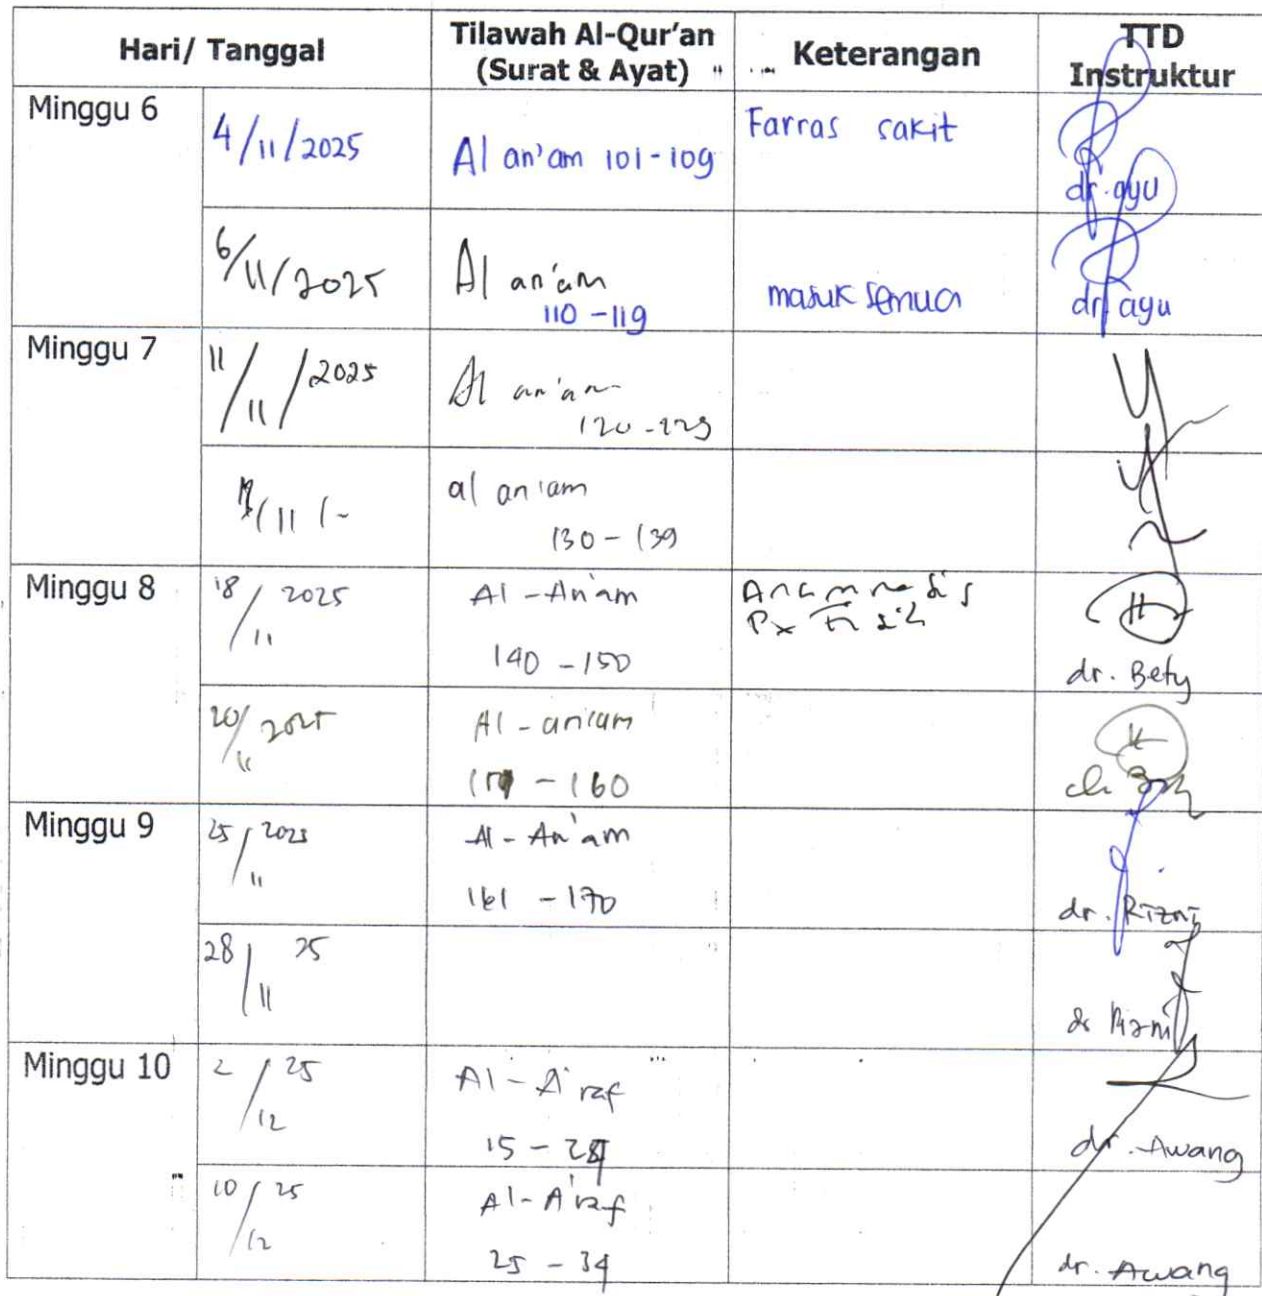 Hari/ Tanggal
Tilawah Al-Qur'an
(Surat & Ayat)
Keterangan
TTD
Instruktur
Minggu 6
4/11/2025
Al an'am 101-109
Farras sakit
dr. ayu
6/11/2025
Al an'am
110-119
masuk semua
dr. ayu
Minggu 7
11/11/2025
Al an'am
120-129
/11/-
al an'am
130-139
Minggu 8
18/11 2025
Al-An'am
140-150
Anamnesis
Px Fisik
dr. Bety
20/11 2025
Al-an'am
- 160
Minggu 9
25/11 2025
Al-An'am
161-170
dr. Rizni
28/11 25
dr Rizni
Minggu 10
2/12 25
Al-A'raf
15-24
dr. Awang
10/12 25
Al-A'raf
25-34
dr. Awang